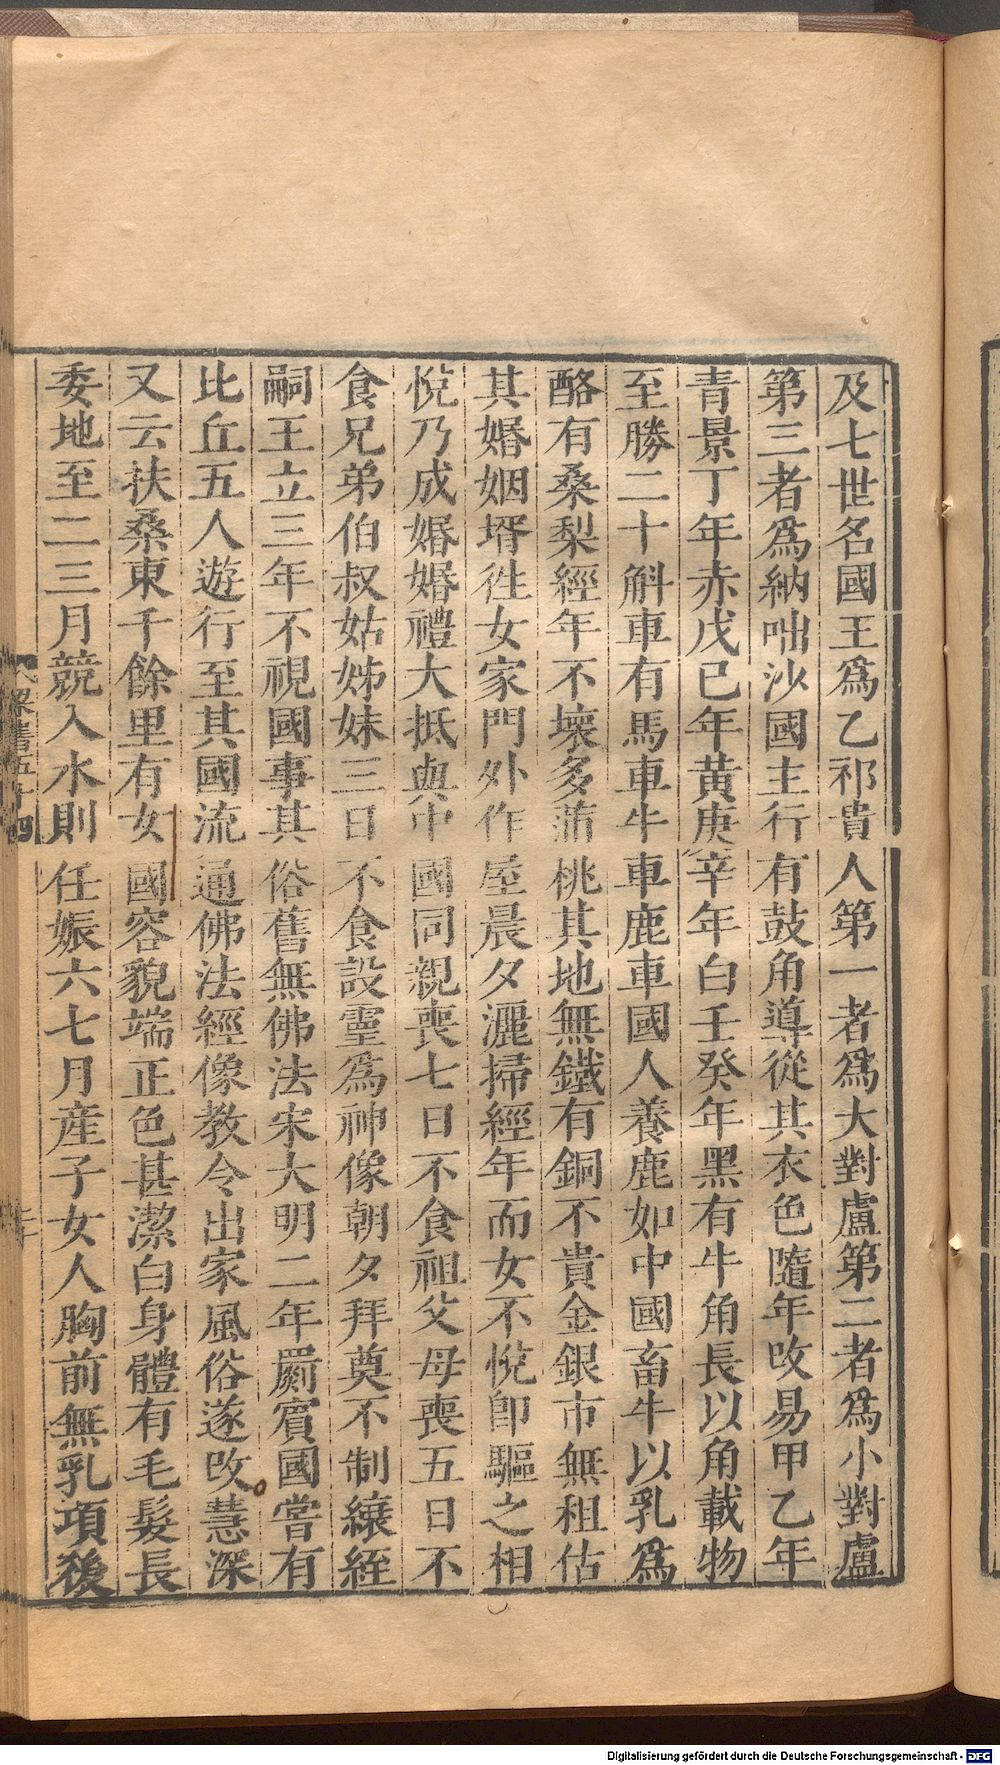 及七世名國王爲乙祁貴人第一者爲大對盧第二者爲小對盧
第三者爲納咄沙國主行有鼓角導從其衣色隨年改易甲乙年
青景丁年赤戊巳年黄庚辛年白壬癸年黑有牛角長以角載物
至勝二十斛車有馬車牛車鹿車國人養鹿如中國畜牛以乳爲
酪有桑梨經年不壞多蒲桃其地無鐵有銅不貴金銀市無租估
其婚姻壻徃女家門外作屋晨夕灑掃經年而女不悅即驅之相
悅乃成婚婚禮大抵與中國同親喪七日不食祖父母喪五日不
食兄弟伯叔姑姊妹三日不食設靈爲神像朝夕拜奠不制縗絰
嗣王立三年不視國事其俗舊無佛法宋大明二年罽賓國嘗有
比丘五人遊行至其國流通佛法經像教令出家風俗遂改慧深
又云扶桑東千餘里有女國容貌端正色甚潔白身體有毛髮長
委地至二三月競入水則任娠六七月産子女人胸前無乳項後
梁書五十四
Digitalisierung gefördert durch die Deutsche Forschungsgemeinschaft - DFG